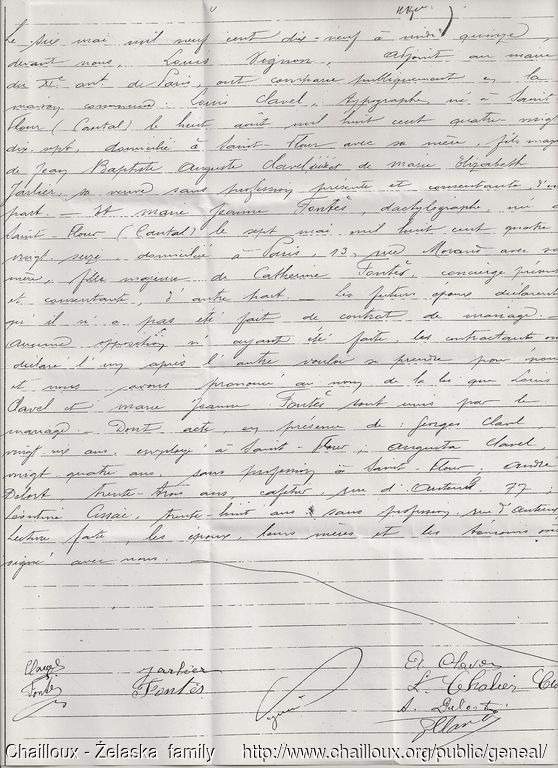 Le six mai mil neuf cent dix-neuf à midi quinze,
devant nous, Louis Vignon, Adjoint au maire
du XIe arrt de Paris, ont comparu publiquement en la
maison commune : Louis Clavel, typographe, né à Saint
Flour (Cantal) le huit août mil huit cent quatre-vingt
dix-sept, domicilié à Saint-Flour avec sa mère, fils majeur
de Jean Baptiste Auguste Clavel, et de Marie Elizabeth
Jarlier, sa veuve sans profession présente et consentante, d'une
part. — Et Marie Jeanne Fontès, dactylographe, née à
Saint Flour (Cantal) le sept mai mil huit cent quatre
vingt seize, domiciliée à Paris, 13, rue Morand avec sa
mère, fille majeure de Catherine Fontès, concierge présente
et consentante, d'autre part. — Les futurs époux déclarent
qu'il n'a pas été fait de contrat de mariage. —
Aucune opposition n'ayant été faite, les contractants ont
déclaré l'un après l'autre vouloir se prendre pour époux
et nous avons prononcé au nom de la loi que Louis
Clavel et Marie Jeanne Fontès sont unis par le
mariage. — Dont acte en présence de : Georges Clavel
vingt six ans, employé à Saint-Flour, Augusta Clavel
vingt quatre ans, sans profession à Saint Flour ; André
Delort, trente-trois ans, cafetier, rue d'Auteuil 77 ;
Léontine Assac, trente-huit ans, sans profession, rue d'Auteuil
Lecture faite, les époux, leurs mères et les témoins ont
signé avec nous. —
Clavel Jarlier A. Clavel
Fontès Fontès L. Chalier
A. Delort
Vignon G Clavel
Chailloux - Żelaska family http://www.chailloux.org/public/geneal/